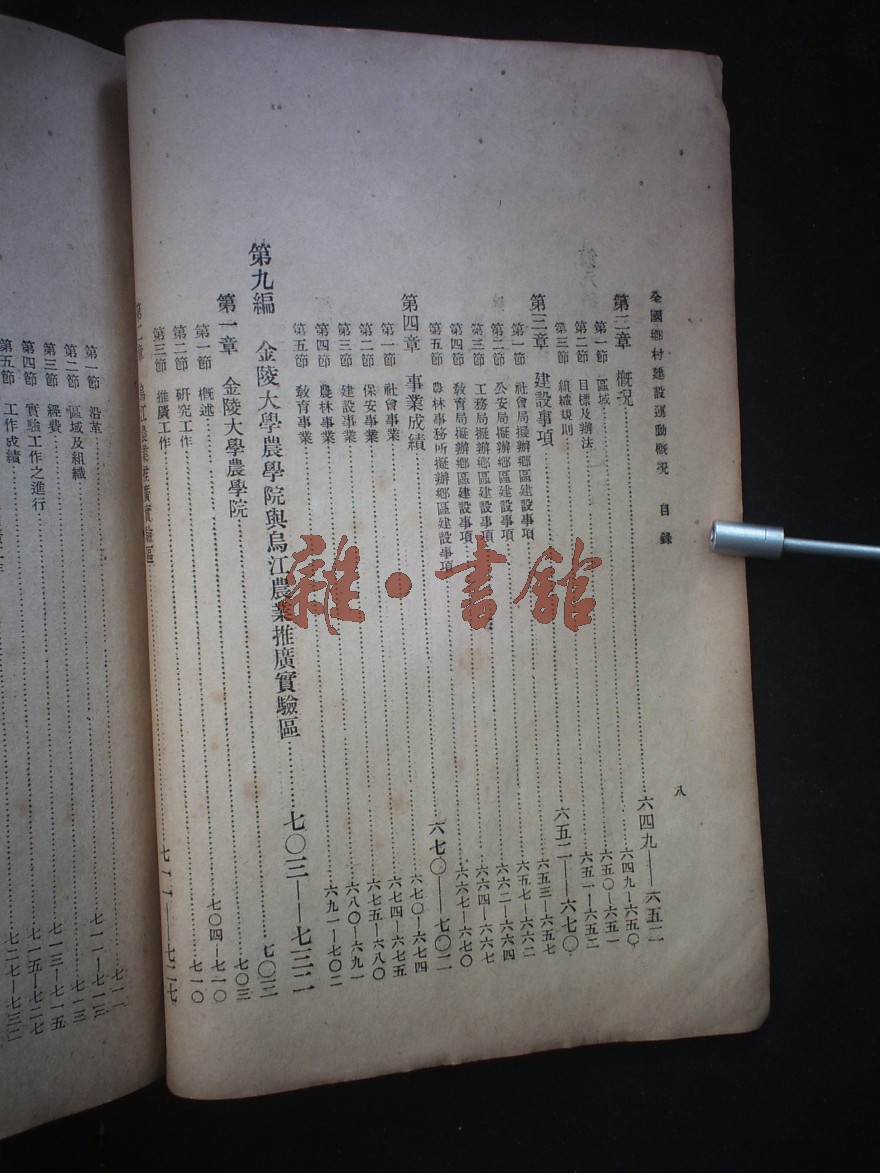 全國鄉村建設運動概況 目錄 八
第二章 概況……六四九—六五二
第一節 區域……六四九—六五〇
第二節 目標及辦法……六五〇—六五一
第三節 組織規則……六五一—六五二
第三章 建設事項……六五二—六七〇
第一節 社會局擬辦鄉區建設事項……六五三—六五七
第二節 公安局擬辦鄉區建設事項……六五七—六六二
第三節 工務局擬辦鄉區建設事項……六六二—六六四
第四節 教育局擬辦鄉區建設事項……六六四—六六七
第五節 農林事務所擬辦鄉區建設事項……六六七—六七〇
第四章 事業成績……六七〇—七〇二
第一節 社會事業……六七〇—六七四
第二節 保安事業……六七四—六七五
第三節 建設事業……六七五—六八〇
第四節 農林事業……六八〇—六九一
第五節 教育事業……六九一—七〇二
第九編 金陵大學農學院與烏江農業推廣實驗區……七〇三—七三二
第一章 金陵大學農學院……七〇三
第一節 概述……七〇三
第二節 研究工作……七〇四—七一〇
第三節 推廣工作……七一〇
第二章 烏江農業推廣實驗區……七一一—七二七
第一節 沿革……七一一
第二節 區域及組織……七一一—七一三
第三節 經費……七一三
第四節 實驗工作之進行……七一三—七一五
第五節 工作成績……七一五—七二七
七二七—七三二
雜·書館